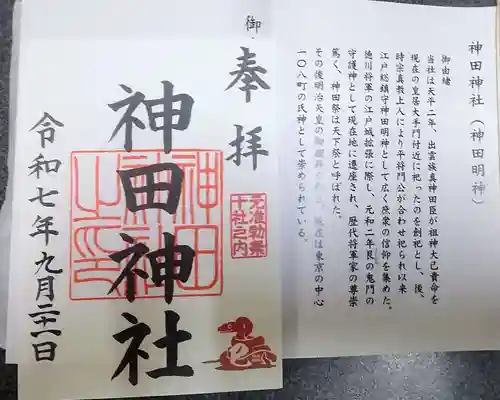 神田神社（神田明神）
御由緒
当社は天平二年、出雲族真神田臣が祖神大己貴命を
現在の皇居大手門付近に祀ったのを創祀とし、後、
時宗真教上人により平将門公が合わせ祀られ以来
江戸総鎮守神田明神として広く庶衆の信仰を集めた。
徳川将軍の江戸城拡張に際し、元和二年艮の鬼門の
守護神として現在地に遷座され、歴代将軍家の尊崇
篤く、神田祭は天下祭と呼ばれた。
その後明治天皇の御親拝 在は東京の中心
一〇八町の氏神として崇められている。
御
奉拝
元准勅祭
十社之内
神田神社
神田
之印
令和七年九月二十一日